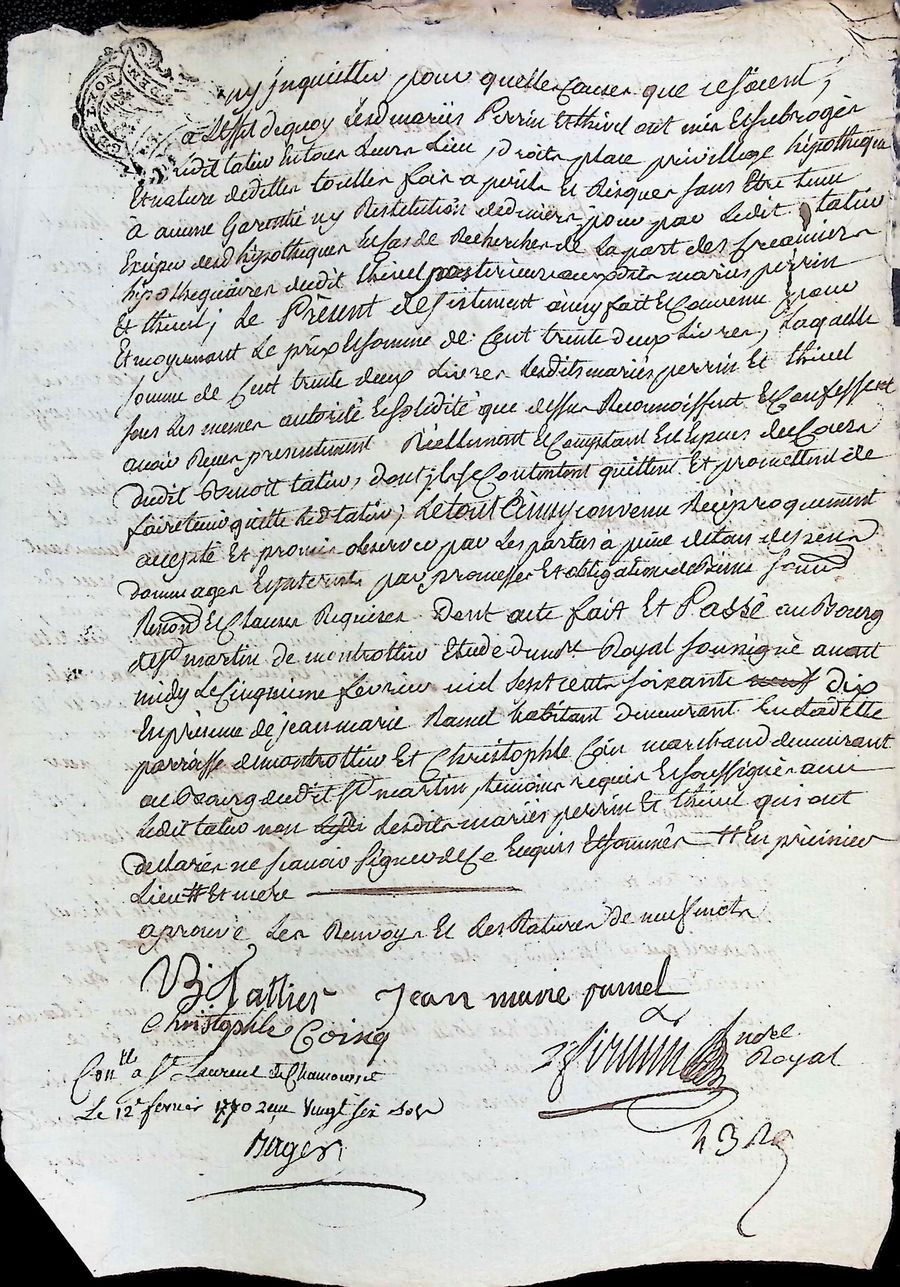 GNE LYON
ny jnquietter pour quelles causes que ce soient,
a Leffet dequoy lesd mariés Perrin Et thivel ont mis Et subrogés
Ledit tatiu En tous Leurs Lieu, droits place privillege hipotheque
Et nature dedettes toutes fois a perils Et Risques sans Etre tenus
à aucune Garantie ny Restitution dedeniers pour par Ledit tatiu
hipotheques En Cas de Recherches de La part des Creanciers
hipothequaires dudit thivel posterieurs auxdits mariés perrin
Et thivel; Le Présent desistement ainsy fait Et Convenu pour
Et moyennant Le prix Et somme de Cent trente deux Livres, Laquelle
somme de Cent trente deux Livres Lesdits mariés perrin Et thivel
sous Les memes autorité Et solidité que dessus Reconnoissent Et Confessent
avoir Reçus presentement Réellement Et Comptant En Especes de Cours
dudit Benoit tatiu, dont jls se Contentent quittent Et promettent de
faire tenir quitte Led tatiu; Le tout Ainsy convenu Réciproquement
accepté Et promis observer par Les parties a peine de tous depens
dommages Et interets par promesses Et obligations de Biens
Renond Et Clauses Requises. Dont acte fait Et Passé au Bourg
de St martin de montrottier Etude du nore Royal soussigné avant
midy Le Cinquieme fevrier mil sept cents soixante dix
En presence de jean marie Ramel habitant demeurant En Ladette
parroisse de montrottier Et Christophle Coin marchand demeurant
au Bourg dudit St martin, temoins requis Et soussignés avec
Ledit tatiu non Lesdits mariés perrin Et thivel qui ont
declarés ne scavoir signer de Ce Enquis Et sommés # En prémier
Lieu # Et mere
aprouvé Les Renvoys Et des Ratures de neuf mots
B. Tattier Jean marie ramel
Christophle Coing
nore
Royal
Conllé à St Laurent de Chamousset
Le 12e fevrier 1770 Reçu Vingt six sols